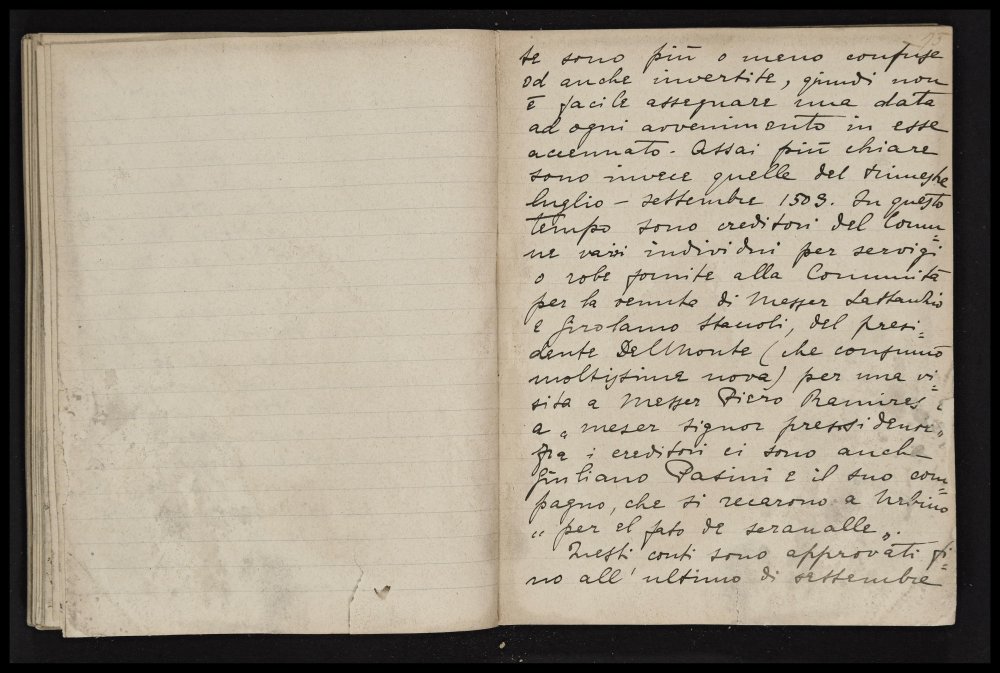 te sono più o meno confuse
od anche invertite, quindi non
è facile assegnare una data
ad ogni avvenimento in esse
accennato. Assai più chiare
sono invece quelle del trimestre
luglio - settembre 1503. In questo
tempo sono creditori del Comu=
ne varii individui per servigi
o robe fornite alla Communità
per la venuta di Messer Lattanzio
e Girolamo Staccoli, del presi=
dente Delmonte (che consumò
moltissime uova) per una vi=
sita a Messer Piero Ramires e
a „ meser signor pressidente„
fra i creditori ci sono anche
Giuliano Pasini e il suo com=
pagno, che si recarono a Urbino
“ per el fato de seraualle „.
Questi conti sono approvati fi=
no all' ultimo di settembre